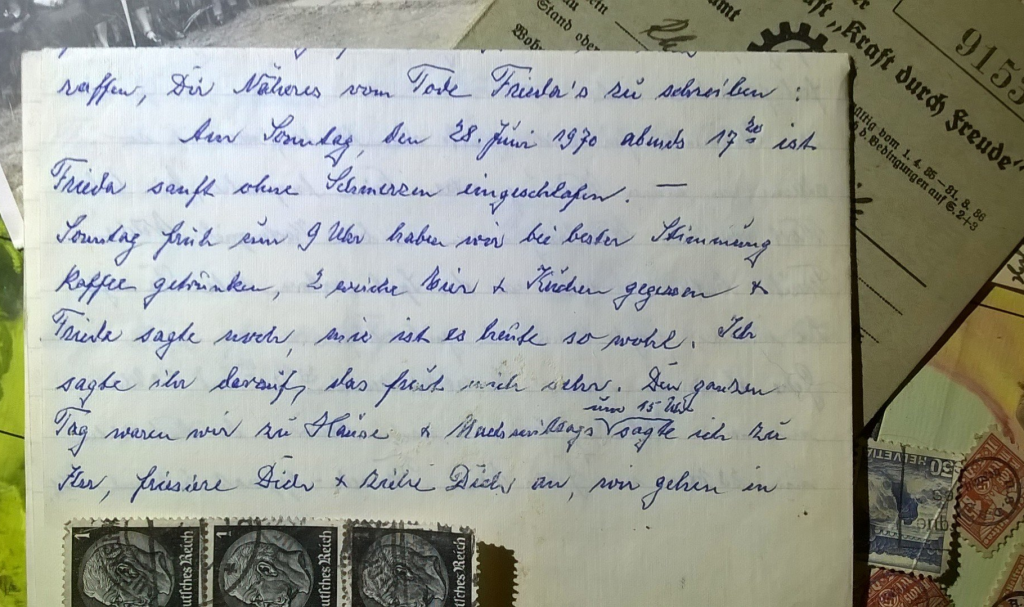 raffen, Dir Näheres vom Tode Frieda's zu schreiben :
Am Sonntag, den 28. Juni 1970 abends 17 20 ist
Frieda sanft ohne Schmerzen eingeschlafen. —
Sonntag früh um 9 Uhr haben wir bei bester Stimmung
Kaffee getrunken, 2 weiche Eier & Kuchen gegessen &
Frieda sagte noch, mir ist es heute so wohl. Ich
sagte ihr darauf, das freut mich sehr. Den ganzen
um 15 Uhr
Tag waren wir zu Hause & Nachmittags sagte ich zu
Ihr, frisiere Dich & ziehe Dich an, wir gehen in
1 Deutsches Reich
1 Deutsches Reich
Deutsches Reich
amt
Stand oder
"Kraft durch Freude"
9153
gültig vom 1. 4. 36 – 31. 8. 36
d. Bedingungen auf S. 2+3
HELVETIA 50